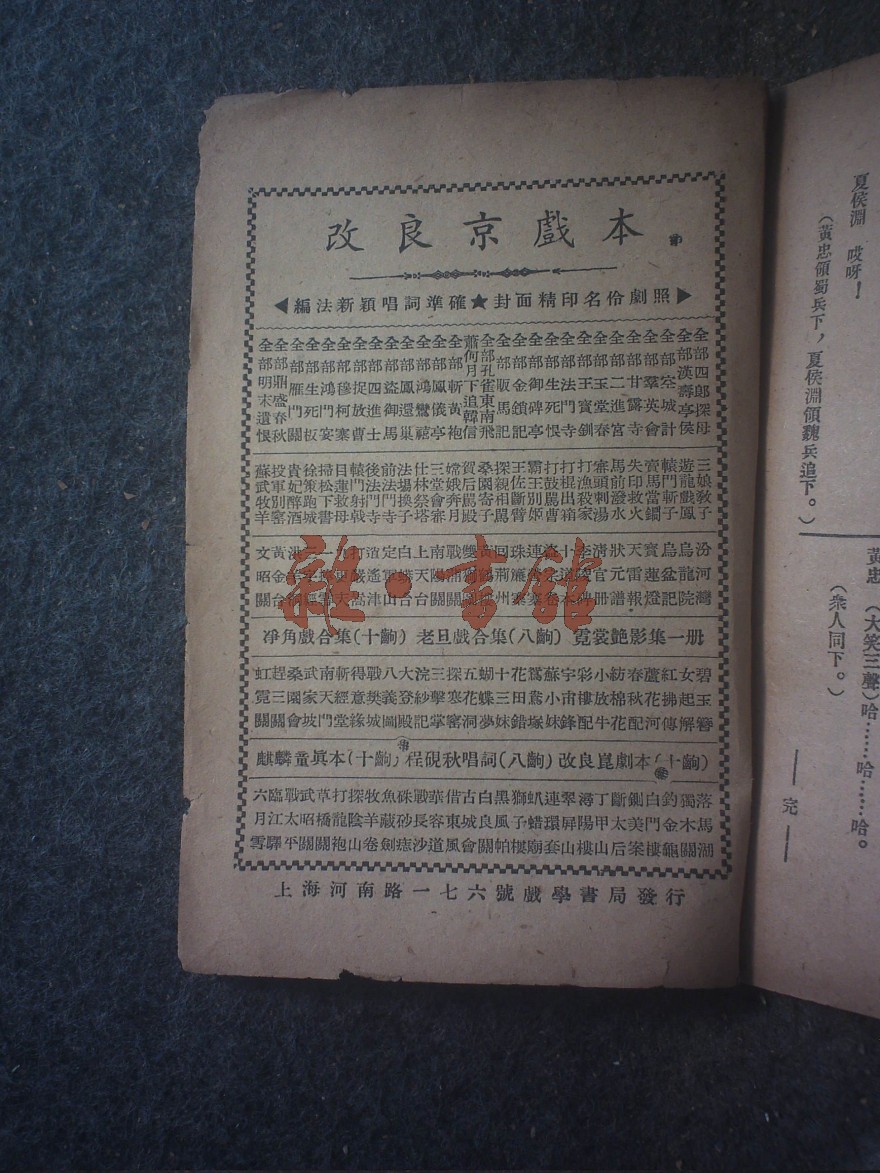 夏侯淵 哎呀!
(黃忠領蜀兵下,夏侯淵領魏兵追下。)
黃忠 (大笑三聲)哈……哈……哈。
(衆人同下。)
——完——
改良京戲本
◀編法新穎唱詞準確★封面精印名伶劇照▶
全部四郎探母
全部漢壽亭侯
全部空城計
全部羣英會
全部甘露寺
全部二進宮
全部玉堂春
全部王寶釧
全部法門寺
全部生死恨
全部御碑亭
全部金鎖記
全部販馬記
全部孔雀東南飛
蕭何月下追韓信
全部斬黃袍
全部鳳儀亭
全部鴻鸞禧
全部鳳還巢
全部盜御馬
全部四進士
全部捉放曹
全部穆柯寨
全部鴻門宴
全部生死板
全部雁門關
全部鼎盛春秋
全部明末遺恨
三娘教子
遊龍戲鳳
轅門斬子
賣馬當鐧
失印救火
馬前潑水
審頭刺湯
打漁殺家
打棍出箱
打鼓罵曹
霸王別姬
王佐斷臂
探親相罵
桑園寄子
賀后罵殿
嫦娥奔月
仕林祭塔
法場換子
前法門寺
後法門寺
轅門射戟
目蓮救母
掃松下書
徐策跑城
貴妃醉酒
投軍別窰
蘇武牧羊
汾河灣
烏龍院
烏盆記
寶蓮燈
天雷報
狀元譜
清官冊
李陵碑
十道本
盜宗卷
連營寨
珠簾寨
回荊州
黃鶴樓
南陽關
上天台
白蟒台
定軍山
黃金台
文昭關
淨角戲合集(十齣) 老旦戲合集(八齣) 霓裳艶影集一册
碧玉簪
女起解
紅拂傳
蘆花河
春秋配
紡棉花
小放牛
彩樓配
宇宙鋒
蘇小妹
鴛鴦塚
花田錯
十三妹
蝴蝶夢
五花洞
探寒窰
三擊掌
浣紗記
大登殿
八義圖
戰樊城
得意緣
斬經堂
南天門
武家坡
桑園會
趕三關
虹霓關
麒麟童眞本(十齣)程硯秋唱詞(八齣)改良崑劇本(十齣)
落馬湖
獨木關
釣金龜
白門樓
鍘美案
斷太后
丁甲山
潯陽樓
翠屏山
連環套
虮蜡廟
獅子樓
黑風帕
白良關
古城會
借東風
華容道
戰長沙
硃砂痣
魚藏劍
牧羊卷
探陰山
打龍袍
草橋關
武昭關
戰太平
臨江驛
六月雪
上海河南路一七六號戲學書局發行
雜·書館